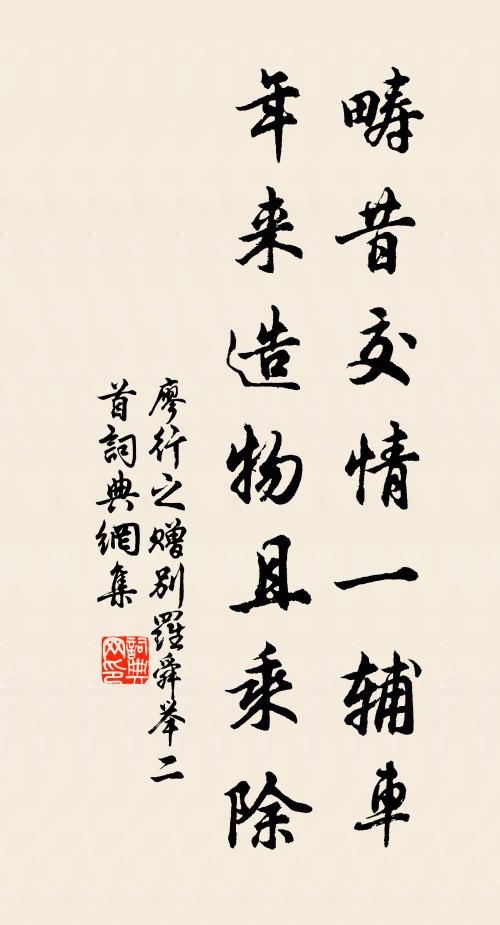 畴昔交情一辅車
年来造物且乘除
廖行之赠别羅舜举二
首詞典網集
詞典
网印